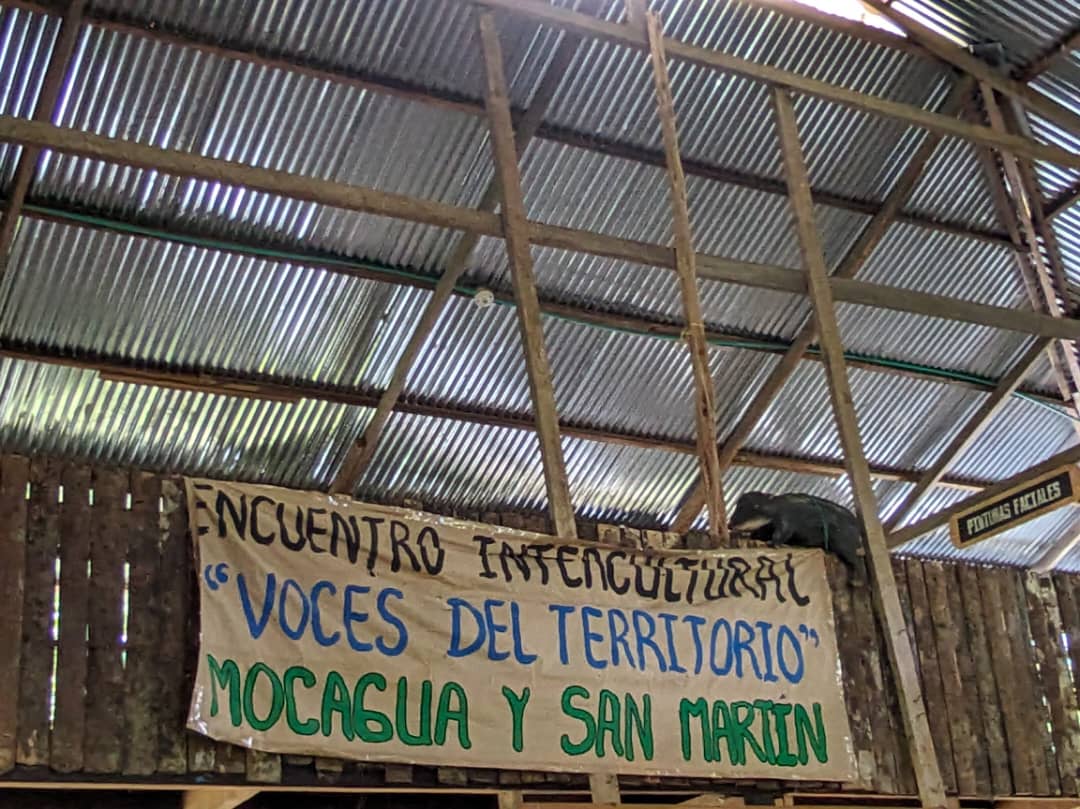 ENCUENTRO INTERCULTURAL
"VOCES DEL TERRITORIO"
MOCAGUA Y SAN MARTÍN
PINTURAS FACIALES